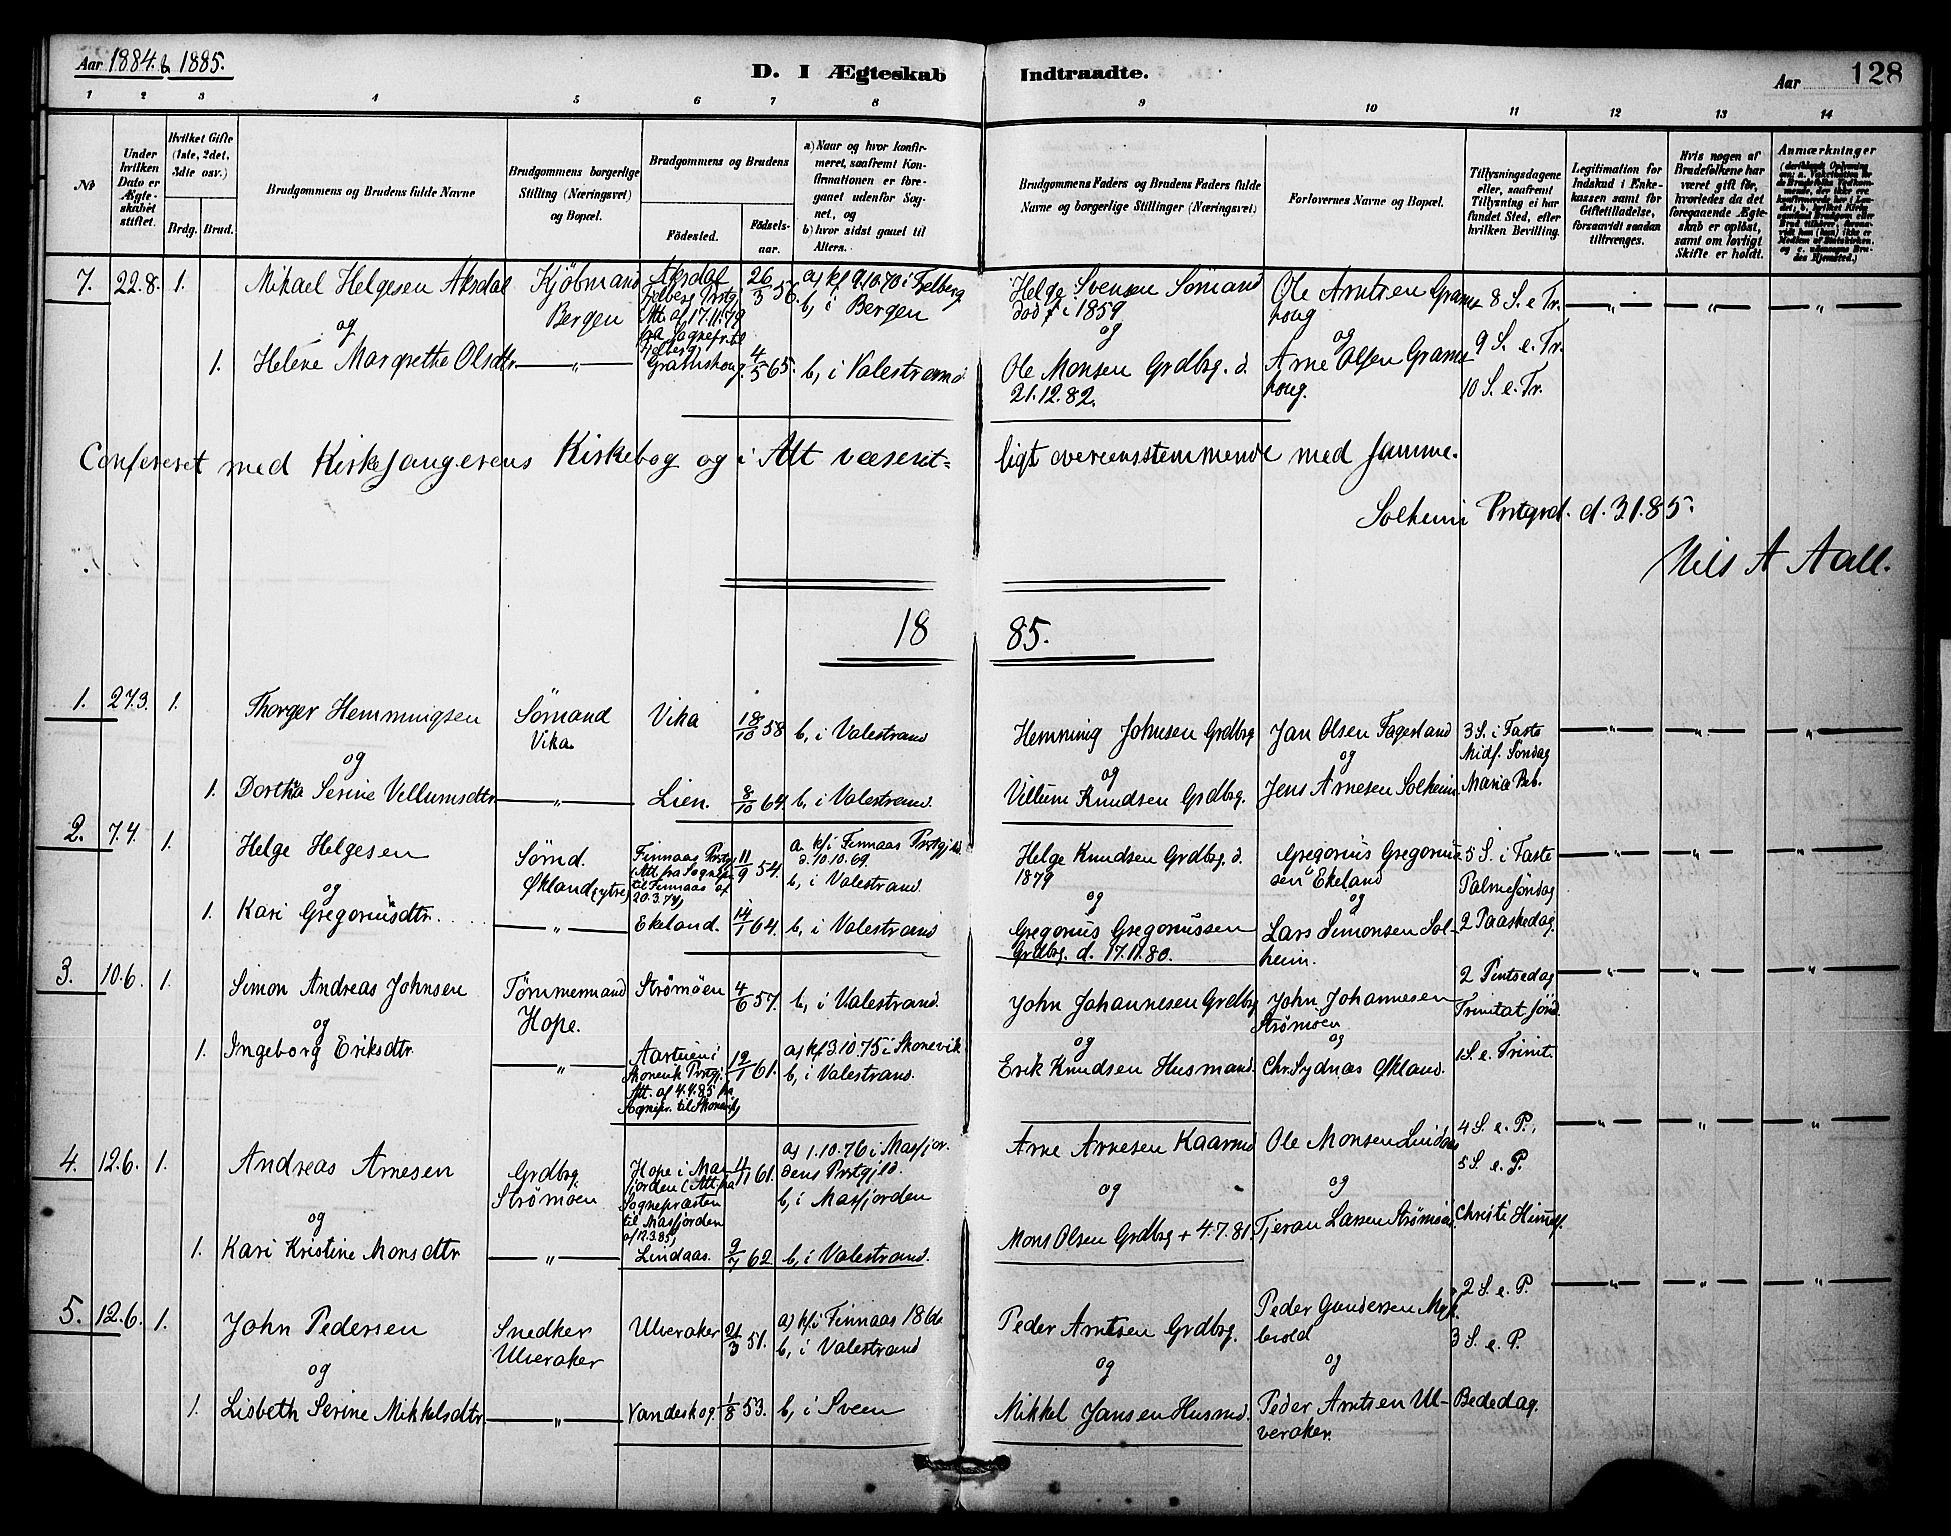 Aar 1884 & 1885.
D. I Ægteskab Indtraadte.
Aar 128
1 2 3 4 5 6 7 8 9 10 11 12 13 14
No
Under hvilken Dato er Ægteskabet stiftet.
Hvilket Gifte (1ste, 2det, 3die osv.)
Brdg. Brud.
Brudgommens og Brudens fulde Navne
Brudgommens borgerlige Stilling (Næringsvei) og Bopæl.
Brudgommens og Brudens
Fødested.
Fødselsaar.
a) Naar og hvor konfirmeret, saafremt Konfirmationen er foregaaet udenfor Sognet, og
b) hvor sidst gaaet til Alters.
Brudgommens Faders og Brudens Faders fulde Navne og borgerlige Stillinger (Næringsvei)
Forlovernes Navne og Bopæl.
Tillysningsdagene eller, saafremt Tillysning ei har fundet Sted, efter hvilken Bevilling.
Legitimation for Indskud i Enkekassen samt for Giftetilladelse, forsaavidt saadan tiltrænges.
Hvis nogen af Brudefolkene har været gift før, hvorledes da det foregaaende Ægteskab er opløst, samt om lovligt Skifte er holdt.
Anmærkninger
7. 22.8. 1. Mikael Helgesen Aksdal
Kjøbmand Bergen
Aksdal Fjelberg Prstg. Att. af 17.11.79 fra Sognepr. til Fjelberg
26/3 56.
a, kf 9.10.70 i Fjelberg
b, i Bergen
Helge Svensen Sømand død i 1859
Ole Arntsen Gramshoug
8 S. e Tr.
og
1. Helene Margrethe Olsdtr. — „ —
Gramshoug. 4/5 65. b, i Valestrand.
og
Ole Monsen Grdbrg. d. 21.12.82.
og
Arne Olsen Gramshoug.
9 S. e. Tr.
10 S. e. Tr.
Confereret med Kirkesangerens Kirkebog og i Alt væsentligt overensstemmende med samme.
Solheim Prstgrd. d. 3.1.85.
Nils A Aall.
1885.
1. 27.3. 1. Thorger Hemmingsen
Sømand Vika.
Vika 18/10 58 b, i Valestrand
Hemming Johnsen Grdbrg
Jan Olsen Fagerland
3 S. i Faste
Midf. Søndag
og
1. Dorthea Serine Villumsdtr. — „ —
Lien. 8/10 64 b, i Valestrand.
og
Villum Knudsen Grdbrg.
og
Jens Arnesen Solheim.
Mariæ Beb.
2. 7.4. 1. Helge Helgesen
Sømd. Økland (ytre)
Finnaas Prstg. (Att. fra Sognepr. til Finnaas af 20.3.74)
11/9 54.
a. kf i Finnaas Prstgjld. d. 10.10.69.
b, i Valestrand.
Helge Knudsen Grdbrg. d. 1879
Gregorius Gregoriussen Ekeland
5 S. i Faste
Palmesøndag
og
1. Kari Gregoriusdtr. — „ —
Ekeland. 14/1 64. b, i Valestrand
og
Gregorius Gregoriussen Grdbrg. d. 17.11.80.
og
Lars Simonsen Solheim.
2 Paaskedag.
3. 10.6. 1. Simon Andreas Johnsen
Tømmermand Hope.
Strømøen 4/6 57. b, i Valestrand.
John Johannesen Grdbrg
John Johannesen Strømøen
2 Pintsedag
Trinitat. Sønd.
og
1. Ingeborg Eriksdtr. — „ —
Aartuen i Skonevik Prstgj. Att. af 4.4.85 fra Sognepr. til Skonevik,
12/1 61.
a, kf 3.10.75 i Skonevik
b, i Valestrand.
og
Erik Knudsen Husmand.
og
Chr. Sydnæs Økland.
1 S. e. Trinit.
4. 12.6. 1. Andreas Arnesen
Grdbrg. Strømøen
Hope i Masfjorden (Att. fra Sognepræsten til Masfjorden af 12.3.85)
4/11 61.
a, 1.10.76 i Masfjordens Prstgjld.
b, i Masfjorden
Arne Arnesen Kaarmd
Ole Monsen Lindaas
4 S. e. P.,
5 S. e. P.
og
1. Kari Kristine Monsdtr — „ —
Lindaas. 9/7 62 b, i Valestrand.
og
Mons Olsen Grdbrg + 4.7.81.
og
Tjeran Larsen Strømøen
Christi Himmelf.
5. 12.6. 1. John Pedersen
Snedker Ulveraker
Ulveraker 21/3 51.
a, kf i Finnaas 1866
b, i Valestrand
Peder Arntsen Grdbrg.
Peder Gundersen
2 S. e. P.
3 S. e. P.
og
1. Lisbeth Serine Mikkelsdtr. — „ —
Vandeskog. 1/8 53. b, i Sveen
og
Mikkel Jansen Husmd.
og
Peder Arntsen Ulveraker.
Bededag.